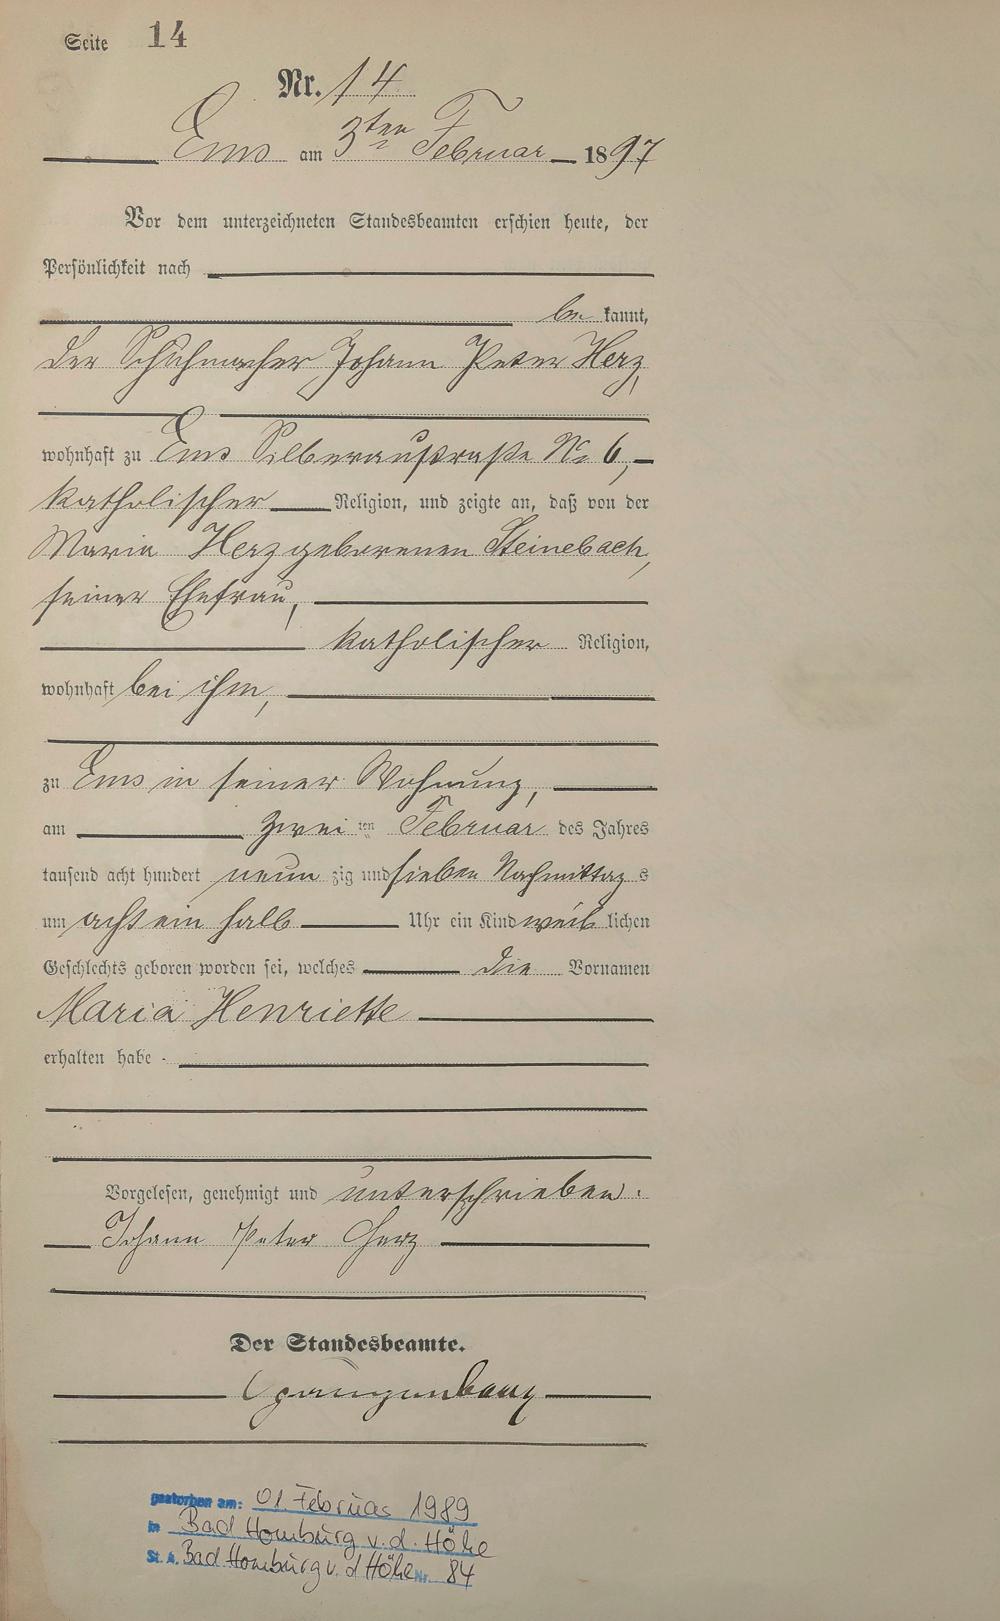 Seite 14
Nr. 14
Ems am 3ten Februar 1897
Vor dem unterzeichneten Standesbeamten erschien heute, der
Persönlichkeit nach
be kannt,
der Schuhmacher Johann Peter Herz,
wohnhaft zu Ems Silberaustraße No 6,
katholischer Religion, und zeigte an, daß von der
Maria Herz geborenen Steinebach,
seiner Ehefrau,
katholischer Religion,
wohnhaft bei ihm,
zu Ems in seiner Wohnung,
am zwei ten Februar des Jahres
tausend acht hundert neun zig und sieben Nachmittag s
um acht ein halb Uhr ein Kind weib lichen
Geschlechts geboren worden sei, welches die Vornamen
Maria Henriette
erhalten habe
Vorgelesen, genehmigt und unterschrieben.
Johann Peter Herz
Der Standesbeamte.
gestorben am: 01. Februar 1989
in Bad Homburg v. d. Höhe
St. A. Bad Homburg v. d Höhe Nr. 84